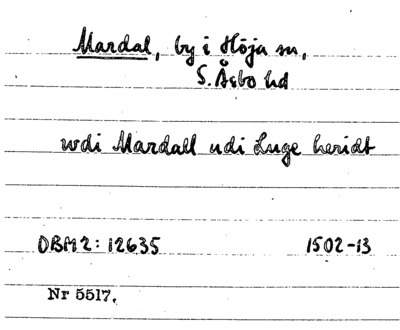 Mardal, by i Höja sn,
S. Åsbo hd
wdi Mardall udi Luge heridt
DBM2: 12635 1502-13
Nr 5517.